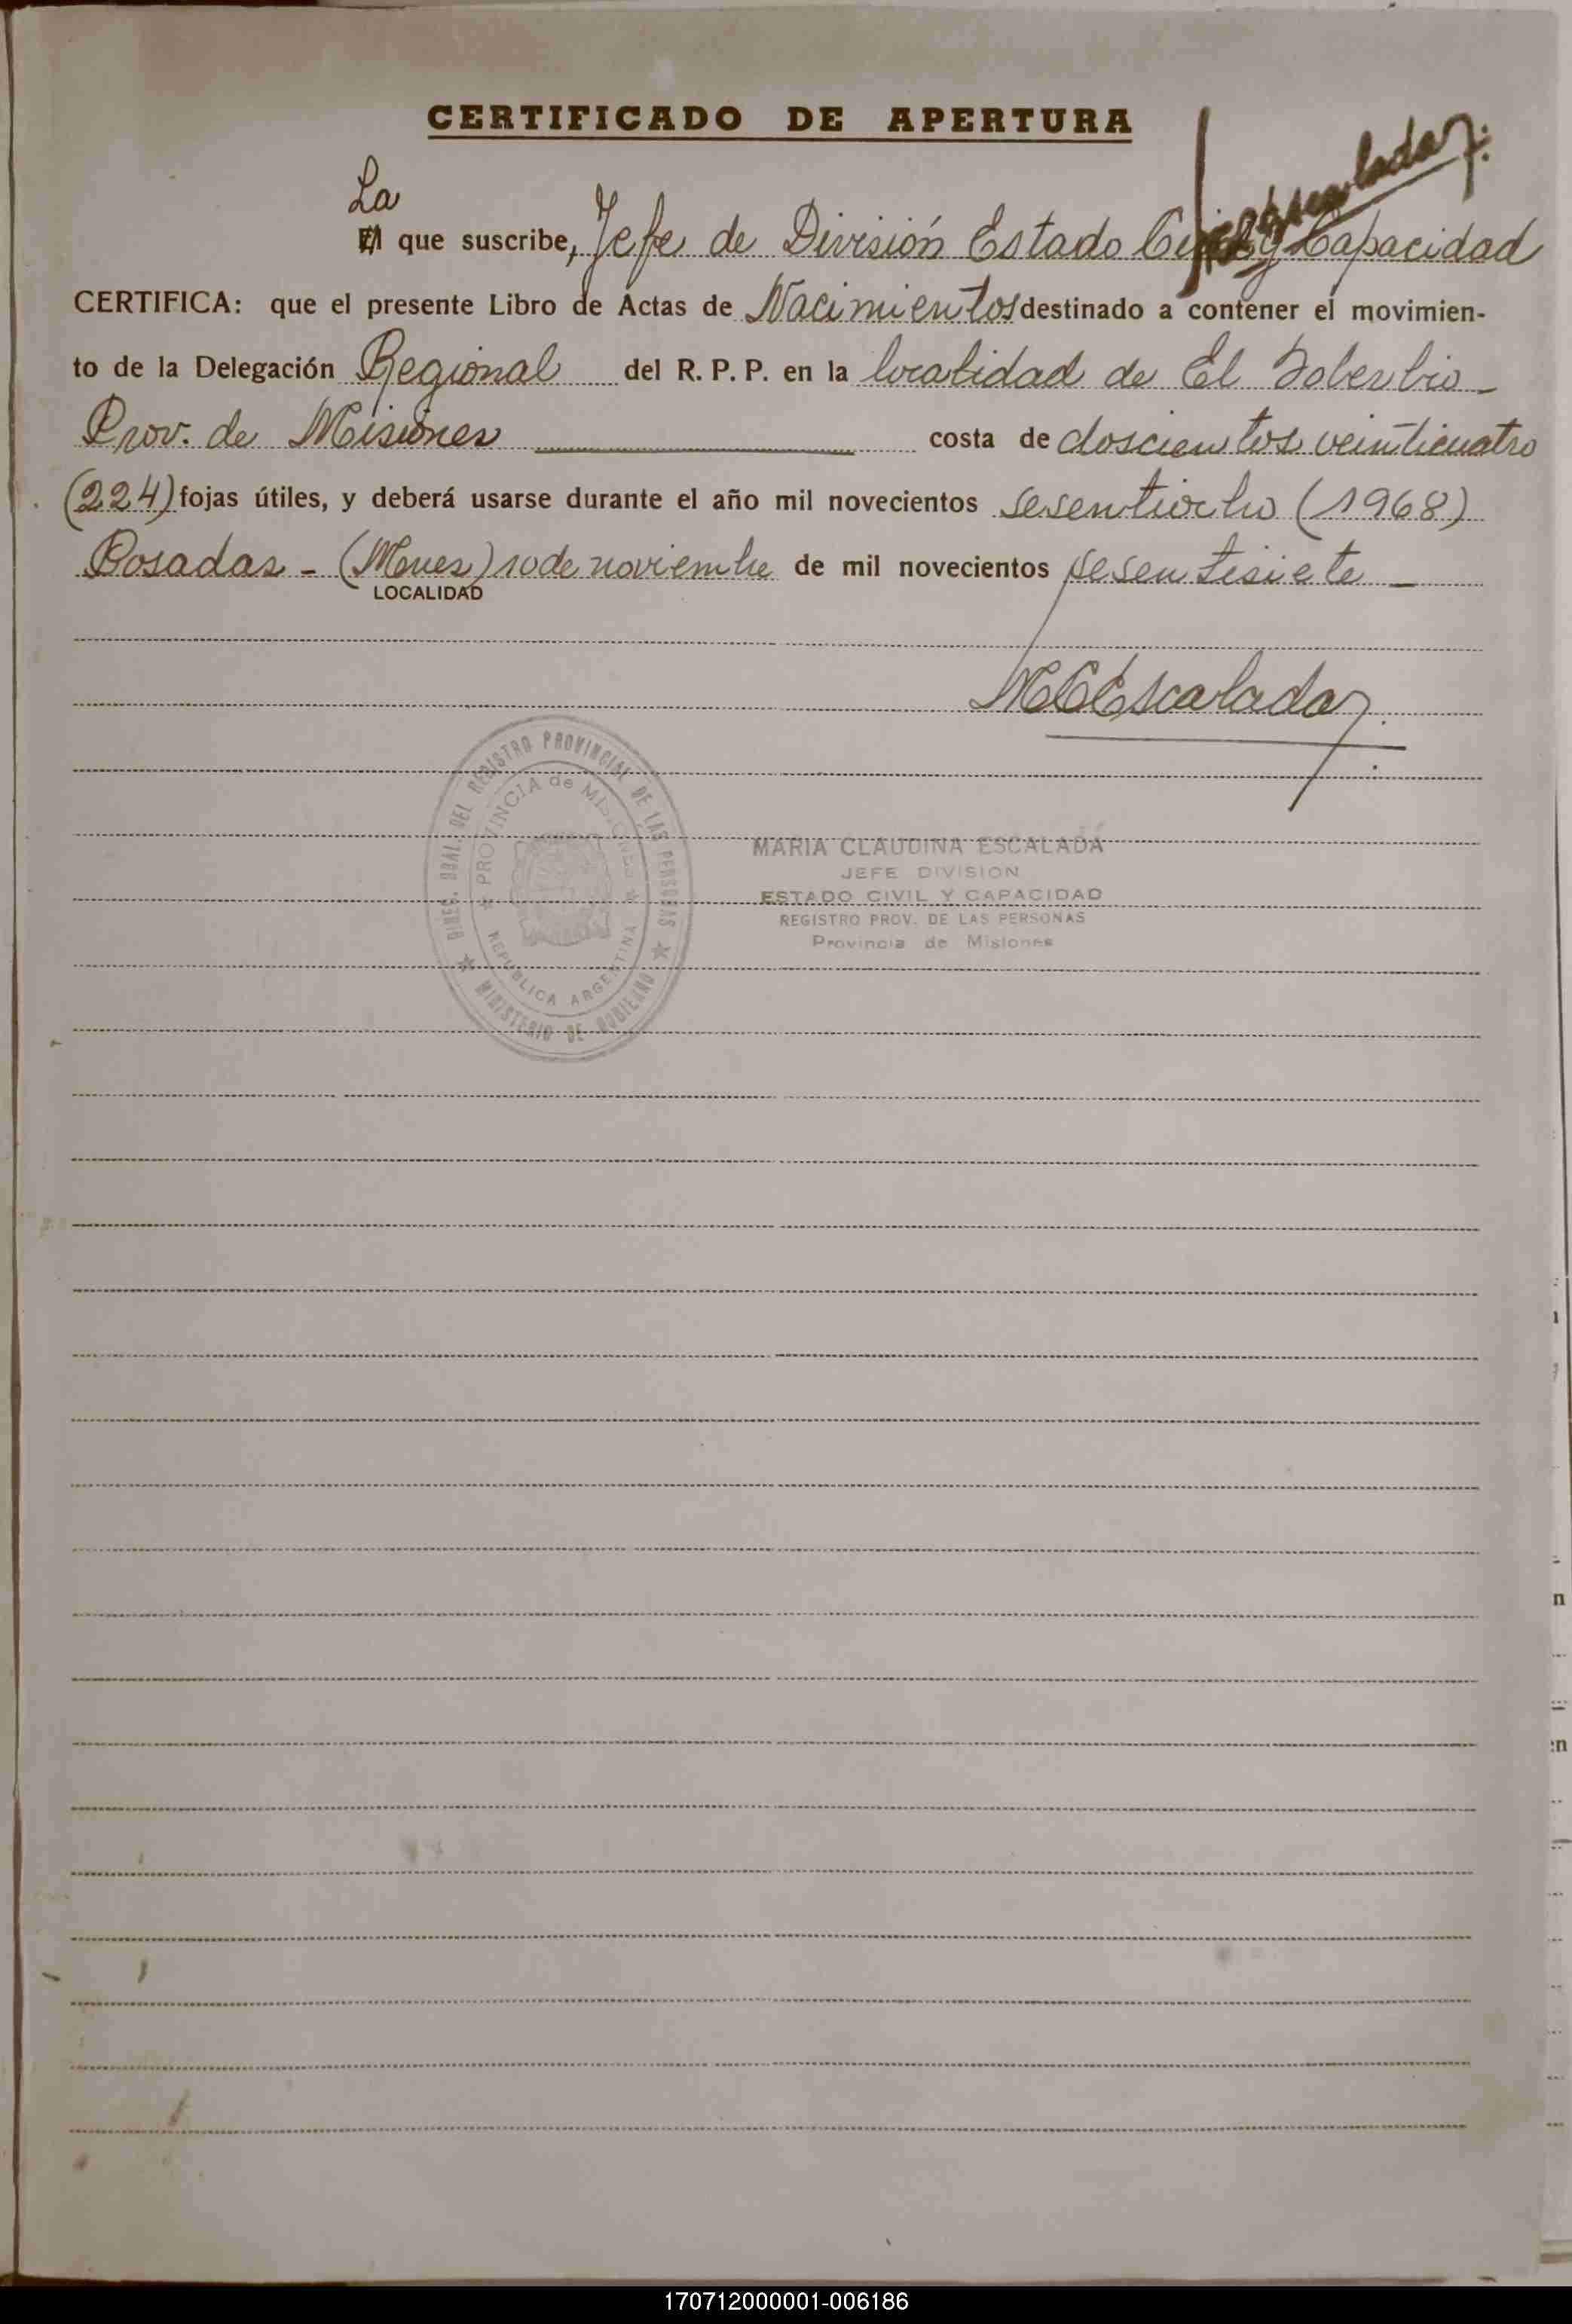 CERTIFICADO DE APERTURA
La
El que suscribe, Jefe de División Estado Civil y Capacidad
CERTIFICA: que el presente Libro de Actas de Nacimientos destinado a contener el movimien-
to de la Delegación Regional del R. P. P. en la localidad de El Soberbio -
Prov. de Misiones costa de doscientos veinticuatro
(224) fojas útiles, y deberá usarse durante el año mil novecientos sesentiocho (1968)
Posadas - (Mnes) 10 de noviembre de mil novecientos sesentisiete -
LOCALIDAD
MCEscalada
DIREC. GRAL. DEL REGISTRO PROVINCIAL DE LAS PERSONAS
PROVINCIA de MISIONES
REPUBLICA ARGENTINA
MINISTERIO DE GOBIERNO
MARIA CLAUDINA ESCALADA
JEFE DIVISION
ESTADO CIVIL Y CAPACIDAD
REGISTRO PROV. DE LAS PERSONAS
Provincia de Misiones
170712000001-006186